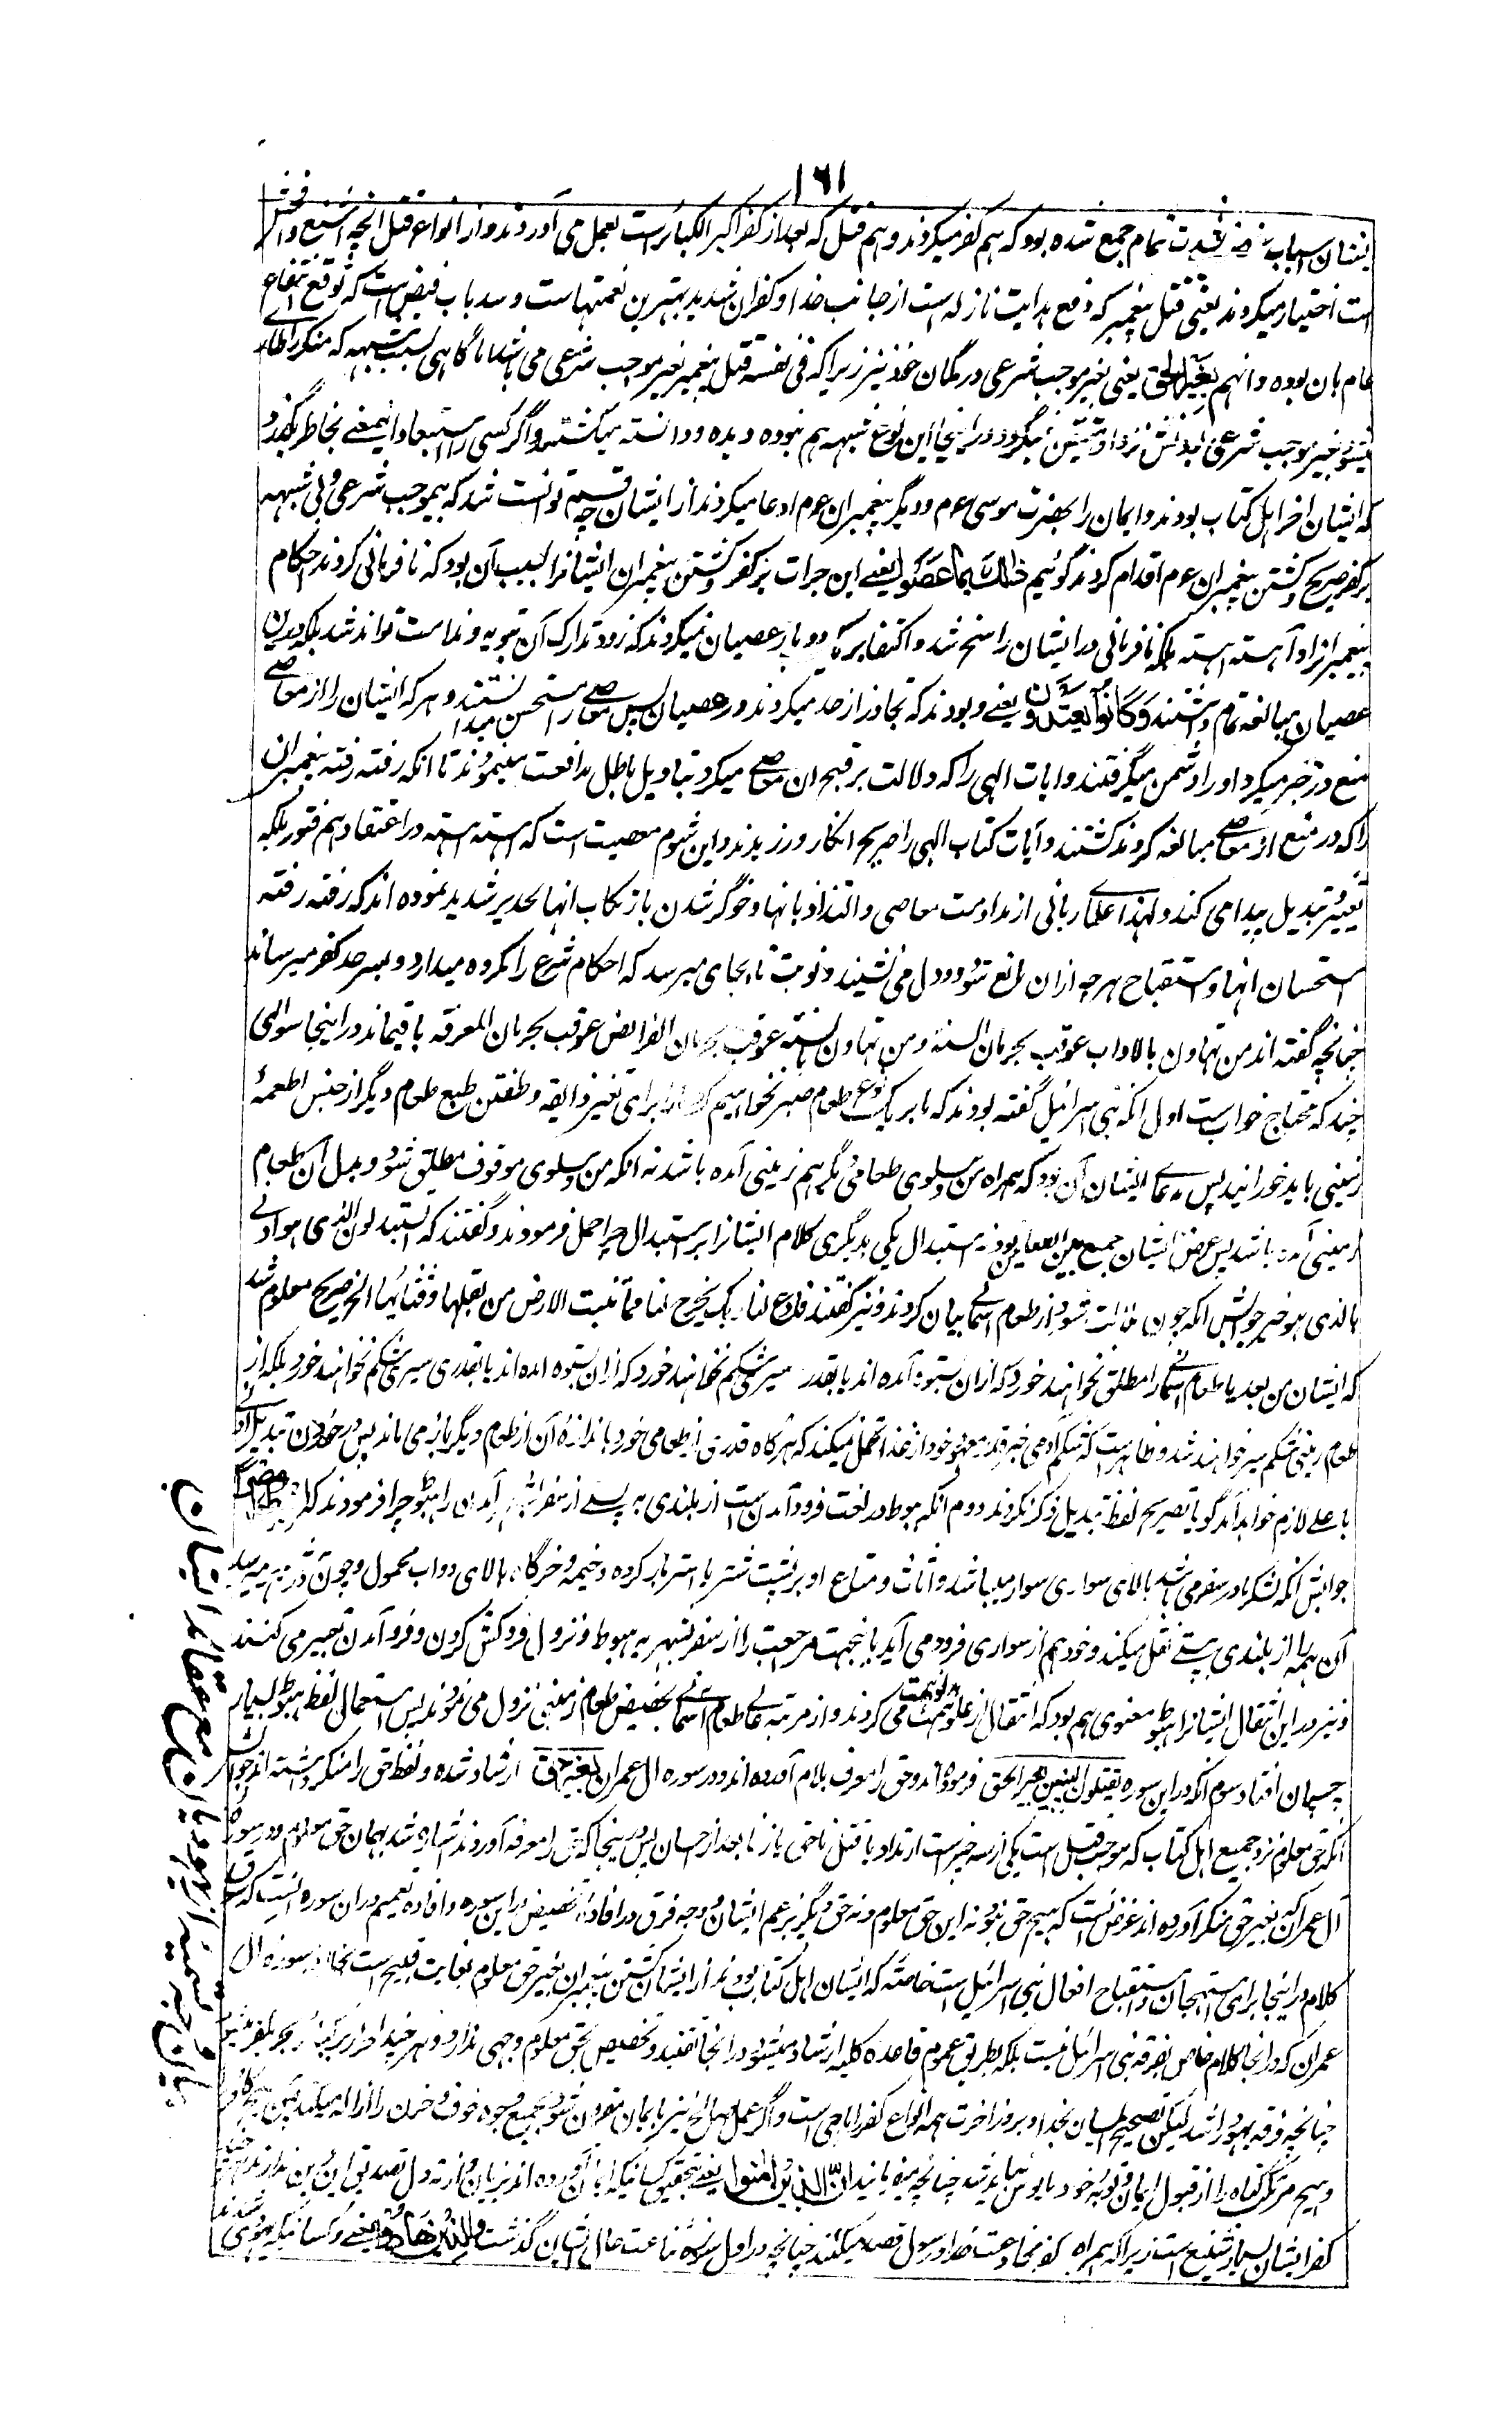 ١٦١
ایشان اسباب غضب بشدت تمام جمع شده بود که هم کفر میکردند و هم قتل که بعد از کفر اکبر الکبائرست بعمل می آوردند و از انواع قتل انچه اشنع و افحش
است اختیار میکردند یعنی قتل پیغمبر که دفع هدایت نازله است از جانب خدا و کفران شدید بهترین نعمتهاست و سد باب فیض است که توقع انتفاع
عام بان بوده و انهم بِغَیْرِ الْحَقِّ یعنی بغیر موجب شرعی در گمان خود نیز زیرا که فی نفسه قتل پیغمبر بغیر موجب شرعی می باشد اما گاهی بسبب شبهه که منکر را
بغیر موجب شرعی نزد او متیقن میگردد در اینجا این نوع شبهه هم نبوده دیده و دانسته میکشتند و اگر کسی را استبعاد اینمعنی بخاطر بگذرد
که ایشان اخر اهل کتاب بودند و ایمان را بحضرت موسی عم و دیگر پیغمبران عم ادعا میکردند از ایشان چه قسم توانست شد که بیموجب شرعی و بی شبهه
بر کفر صریح و کشتن پیغمبران عم اقدام کردند گوئیم ذٰلِكَ بِمَا عَصَوْا یعنی این جرات بر کفر و کشتن پیغمبران ایشانرا بسبب آن بود که نافرمانی کردند احکام
پیغمبرانرا و آهسته اهسته ملکه نافرمانی در ایشان راسخ شد و اکتفا بر یک دو بار عصیان نمیکردند که زود تدارک آن بتوبه و ندامت تواند شد بلکه درین
عصیان مبالغه تمام داشتند وَكَانُوْا يَعْتَدُوْنَ یعنی و بودند که تجاوز از حد میکردند در عصیان پس معاصی را مستحسن میدانستند و هر که ایشان را از معاصی
منع و زجر میکرد او را دشمن میگرفتند و ایات الهی را که دلالت بر قبح ان معاصی میکرد بتاویل باطل مدافعت مینمودند تا انکه رفته رفته پیغمبران
را که در منع از معاصی مبالغه کردند کشتند و آیات کتاب الهی را صریح انکار ورزیدند و این شوم معصیت است که اهسته اهسته در اعتقاد هم فتور بلکه
تغییر و تبدیل پیدا می کند و لهذا علمای ربانی از مداومت معاصی و التذاذ بانها و خوگر شدن بارتکاب انها تحذیر شدید نموده اند که رفته رفته
استحسان انها و استقباح هر چه ازان مانع شود در دل می نشیند و نوبت تا بجای میرسد که احکام شرع را مکروه میدارد و بسرحد کفر میرساند
چنانچه گفته اند من تهاون بالاداب عوقب بحرمان السنة و من تهاون بالسنة عوقب بحرمان الفرائض عوقب بحرمان المعرفة باقیماند در اینجا سوالی
چند که محتاج جواب ست اول انکه بنی اسرائیل گفته بودند که ما بر یک نوع طعام صبر نخواهیم کرد برای تغیر ذایقه و طبع طعام دیگر از جنس اطعمهٔ
زمینی باید خورانید پس مدعای ایشان آن بود که همراه من و سلوی طعامی دیگر هم زمینی آمده باشد نه انکه من و سلوی موقوف مطلق شود و بدل آن طعام
زمینی آمده باشد پس غرض ایشان جمع بین الطعامین بود نه استبدال یکی بدیگری کلام ایشانرا بر استبدال چرا حمل فرمودند و گفتند که اتستبدلون الذی هو ادنی
بالذی هو خیر جوابش انکه چون از طعام آسمانی بیان کردند و نیز گفتند فادع لنا ربک یخرج لنا مما تنبت الارض من بقلها و قثائها الخ صریح معلوم شد
که ایشان من بعد یا طعام آسمانی را مطلق نخواهند خورد که ازان بستوه آمده اند یا بقدر سیری شکم نخواهند خورد که ازان بستوه امده اند یا بقدری سیری شکم نخواهند خورد بلکه از
طعام زمینی شکم سیر خواهند شد و ظاهرست که شکم ادمی قدر معهود خود از غذا تحمل میکند که هر گاه قدری از طعامی خورد باندازهٔ آن از طعام دیگر باز می ماند پس در خوردن تبدیل
باعلی لازم خواهد آمد گویا تصریح لفظ تبدیل ذکر نکردند دوم انکه هبوط در لغت فرود آمدن ست از بلندی به پستی از سفر آمدن را هبوط چرا فرمودند که
جوابش انکه لشکر یا در سفر می باشد بالای سواری سوار میباشد و اثاث و متاع او بر پشت شتر یا استر بار کرده و خیمه و خرگاه بالای دواب محمول و چون در شهر میرسد
آن همه را از بلندی به پستی نقل میکند و خود هم از سواری فرود می آید باینجهت مراجعت را از سفر بشهر به هبوط و نزول و فروکش کردن و فرود آمدن تعبیر می کنند
و نیز در این انتقال ایشانرا هبوط معنوی هم بود که انتقال از علو همت می کردند و از مرتبه عالی طعام آسمانی بحضیض طعام زمینی نزول می نمودند پس استعمال لفظ هبوط بسیار
چسپان افتاد سوم انکه در این سوره یقتلون النبیین بغیر الحق فرموده اند و حق را معرف بلام آورده اند و در سوره ال عمران بغیر حق ارشاد شده و لفظ حق را منکر داشته اند جوابش
انکه حق معلوم نزد جمیع اهل کتاب که موجب قتل است یکی از سه چیزست ارتداد یا قتل ناحق یا زنا بعد از احصان پس در اینجا که حق را معرفه آوردند اشاره شد بهمان حق معلوم و در سوره
آل عمران که بغیر حق منکر آورده اند غرض آنست که هیچ حق نبود نه این حق معلوم و نه حق دیگر بزعم ایشان و وجه فرق در افادهٔ تخصیص در این سوره و افاده تعمیم دران سوره انست که سوق
کلام در اینجا برای استهجان و استقباح افعال بنی اسرائیل است خاصته که ایشان اهل کتاب بودند از ایشان کشتن پیغمبران بغیر حق معلوم بغایت قبیح است بخلاف سوره ال
عمران که در انجا کلام خاص بفرقه بنی اسرائیل نیست بلکه بطریق عموم قاعده کلیه ارشاد میشود در انجا تقیید و تخصیص بحق معلوم وجهی ندارد و هر چند
چنانچه فرقه یهود راشد لیکن تصحیح ایمان بخدا و بروز اخرت همه انواع کفر را ماحی است و اگر عمل صالح نیز بایمان مقرون شود جمیع وجوه خوف و حزن را ازاله میکند پس هیچ کافر
و هیچ مرتکب گناه را از قبول ایمان و توبهٔ خود مایوس نباید شد چنانچه میفرمایند اِنَّ الَّذِيْنَ اٰمَنُوْا یعنی بتحقیق کسانیکه ایمان آورده اند بزبان و از ته دل تصدیق این دین ندارند
کفر ایشان بسیار شنیع است زیرا که همراه کفر مخادعت خدا و رسول قصد میکنند چنانچه در اول سوره شناعت حال ایشان گذشت وَالَّذِيْنَ هَادُوْا یعنی و کسانیکه یهودی شدند
بیان وجه تسمیه یهودیان مع عقائد ایشان